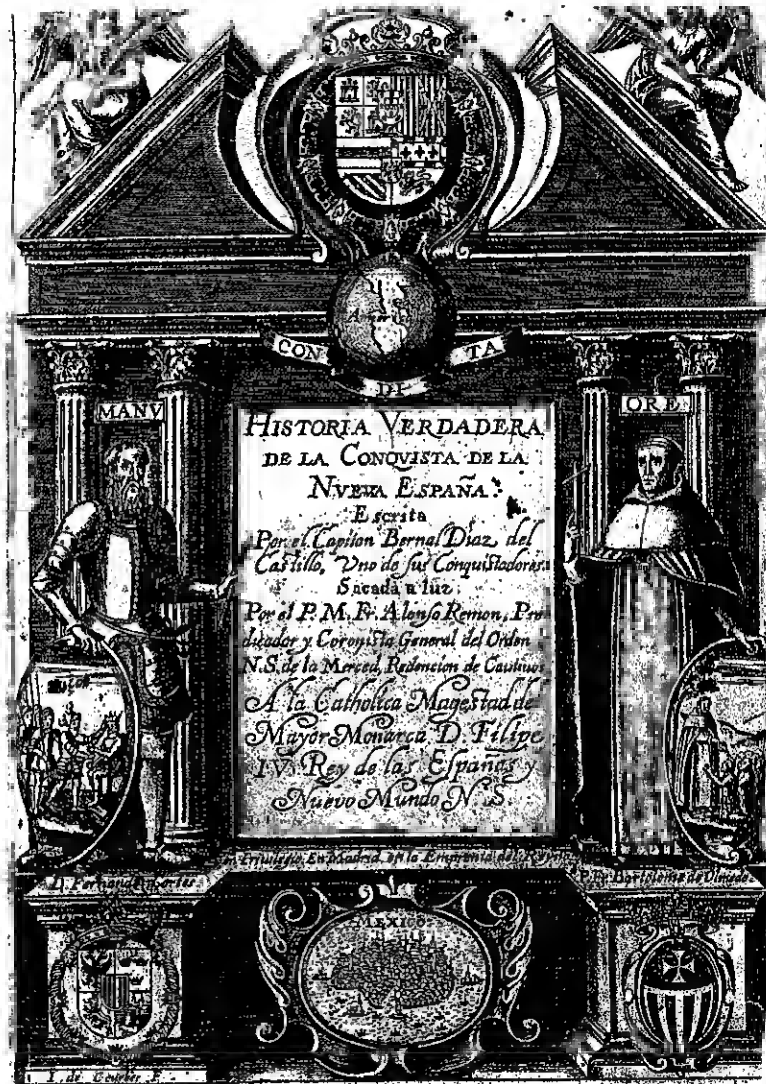 America
CON DI TA
MANV
ORE
HISTORIA VERDADERA
DE LA CONQVISTA DE LA
NVEVA ESPAÑA.
Escrita
Por el Capitan Bernal Diaz del
Castillo, Vno de sus Conquistadores.
Sacada a luz
Por el P. M. Fr. Alonso Remon, Pre
dicador y Coronista General del Orden
N. S. de la Merced, Redencion de Cautivos
A la Catholica Magestad del
Mayor Monarca D. Filipe
IV. Rey de las Españas y
Nuevo Mundo N. S.
Privilegio, En Madrid, en la Emprenta del Reyno
D. Fernando Cortes
P. Fr. Bartolome de Olmedo
MEXICO
I. de Courbes F.